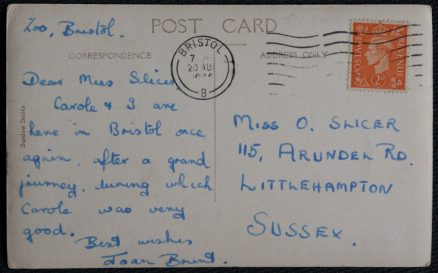 Zoo, Bristol.
POST CARD
CORRESPONDENCE
ADDRESS ONLY
BRISTOL
7
20 AU
B
POSTAGE
REVENUE
2D
Dear Miss Slicer,
Carole & I are
here in Bristol once
again, after a grand
journey, during which
Carole was very
good.
Best wishes
Joan Brunt.
Miss O. SLICER
115, ARUNDEL RD.
LITTLEHAMPTON
SUSSEX.
Series